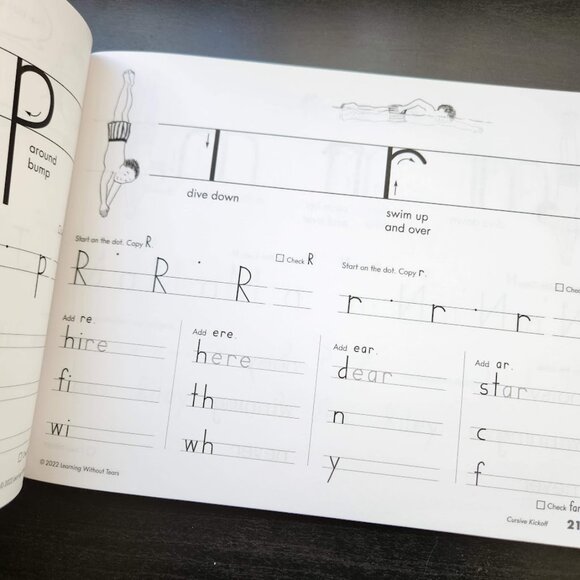 p
around
bump
p
dive down
r
swim up
and over
Start on the dot. Copy R.
Check R
R R R
Start on the dot. Copy r.
r r r
Add re.
hire
fi
wi
Add ere.
here
th
wh
Add ear.
dear
n
y
Add ar.
star
c
f
© 2022 Learning Without Tears
Check
Cursive Kickoff
21